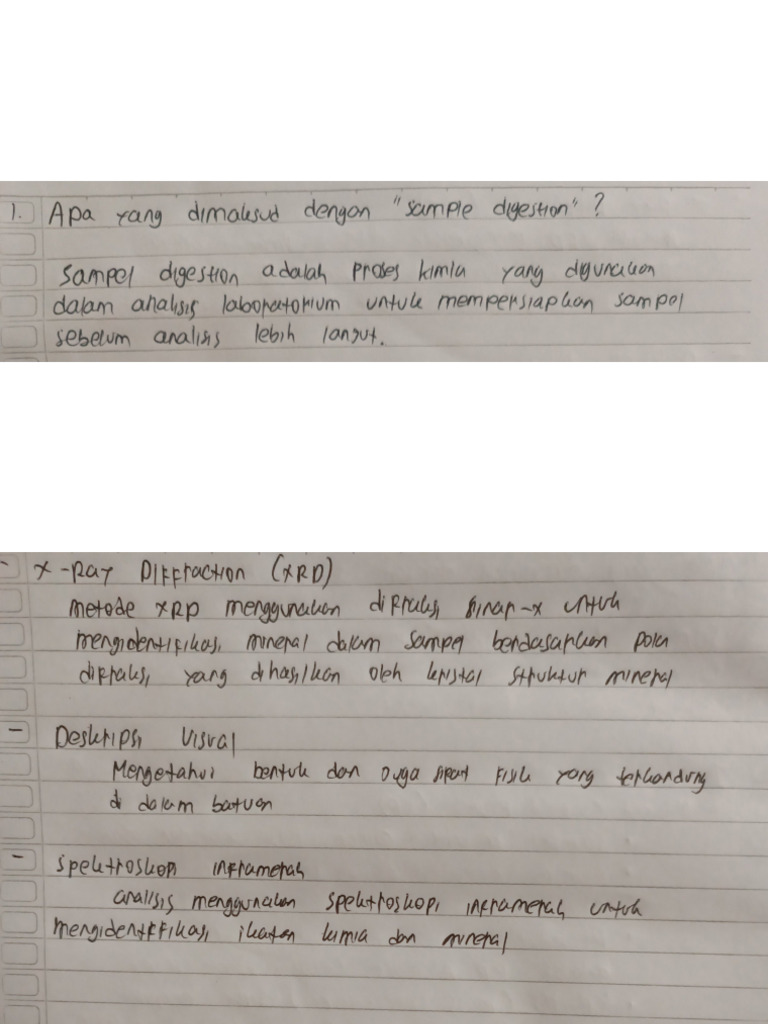 1. Apa yang dimaksud dengan "sample digestion" ?
Sampel digestion adalah proses kimia yang digunakan
dalam analisis laboratorium untuk mempersiapkan sampel
sebelum analisis lebih lanjut.
- X-Ray Diffraction (XRD)
metode XRD menggunakan difraksi sinar-x untuk
mengidentifikasi mineral dalam sampel berdasarkan pola
difraksi yang dihasilkan oleh kristal struktur mineral
- Deskripsi Visual
Mengetahui bentuk dan juga sifat fisik yang terkandung
di dalam batuan
- Spektroskopi inframerah
analisis menggunakan spektroskopi inframerah untuk
mengidentifikasi ikatan kimia dan mineral